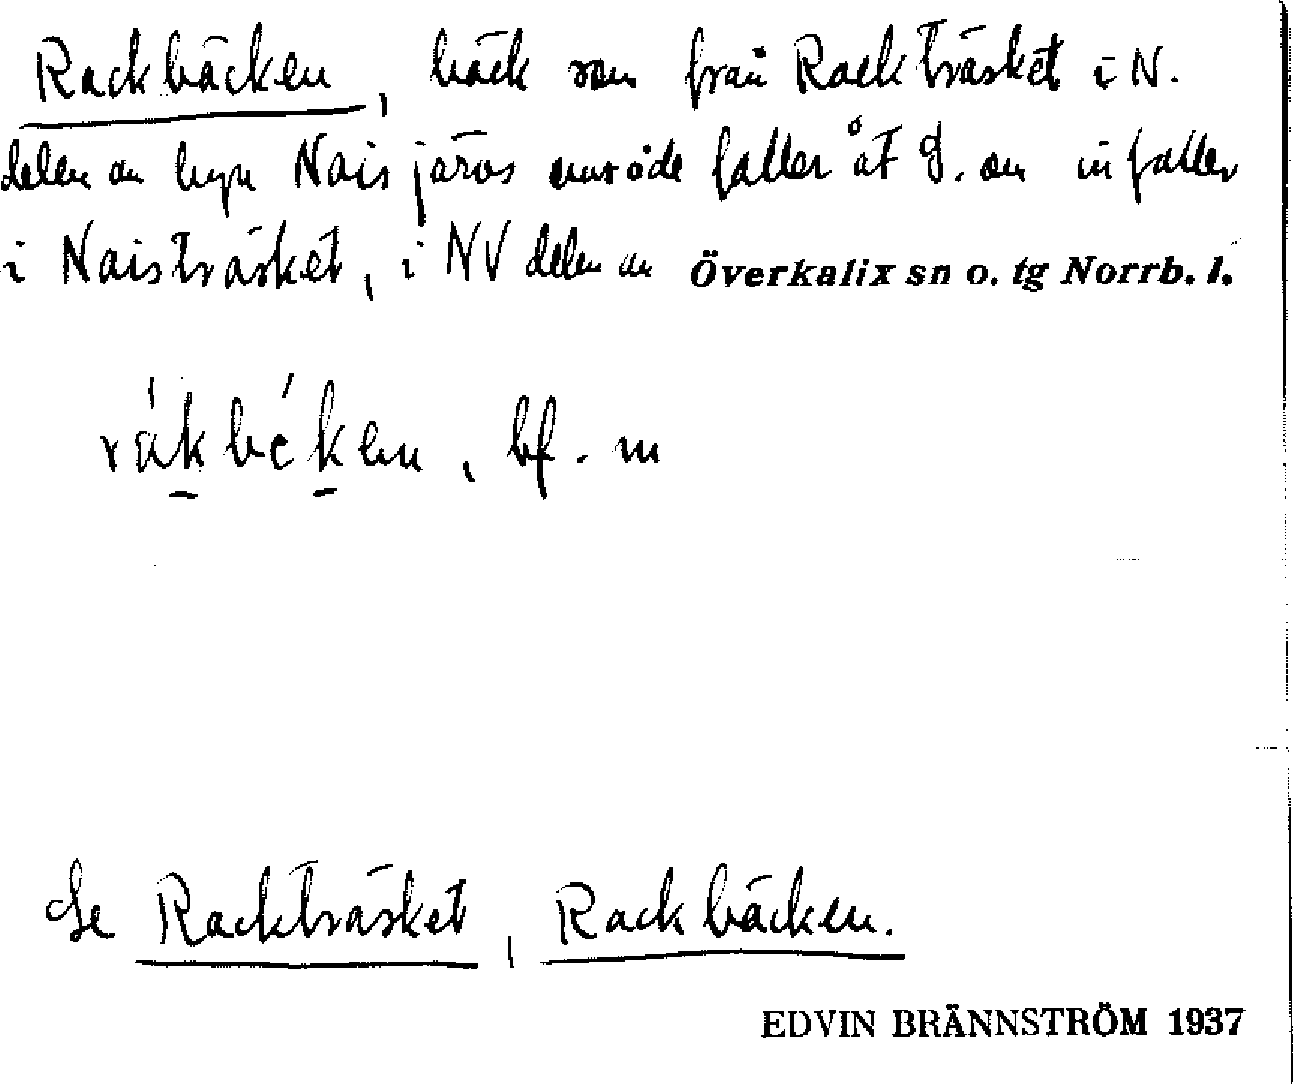 Rackbäcken, bäck som från Rackträsket i N.
delen av byn Naisjärvs område faller åt S. och infaller
i Naisträsket, i NV delen av Överkalix sn o. tg Norrb. l.
bf. m
Se Rackträsket, Rackbäcken.
EDVIN BRÄNNSTRÖM 1937